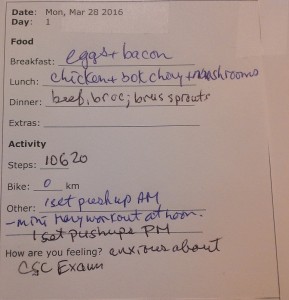 Date: Mon, Mar 28 2016
Day: 1
Food
Breakfast: eggs + bacon
Lunch: chicken + bok choy + mushrooms
Dinner: beef, broc, brus sprouts
Extras:
Activity
Steps: 10620
Bike: 0 km
Other: 1 set pushup AM
- mini navy workout at noon.
1 set pushups PM
How are you feeling? anxious about
CSC Exam